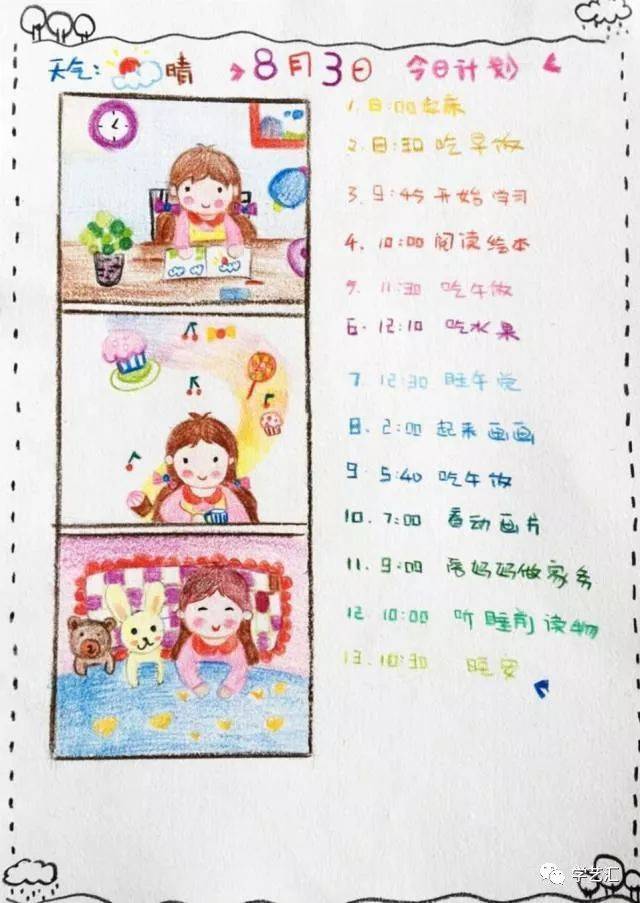 天气: 晴 8月3日 今日计划
1. 8:00起床
2. 8:30 吃早饭
3. 9:45 开始学习
4. 10:00 阅读绘本
5. 11:30 吃午饭
6. 12:10 吃水果
7. 12:30 睡午觉
8. 2:00 起来画画
9. 5:40 吃午饭
10. 7:00 看动画片
11. 9:00 妈妈做家务
12. 10:00 听睡前读物
13. 10:30 晚安
学艺汇